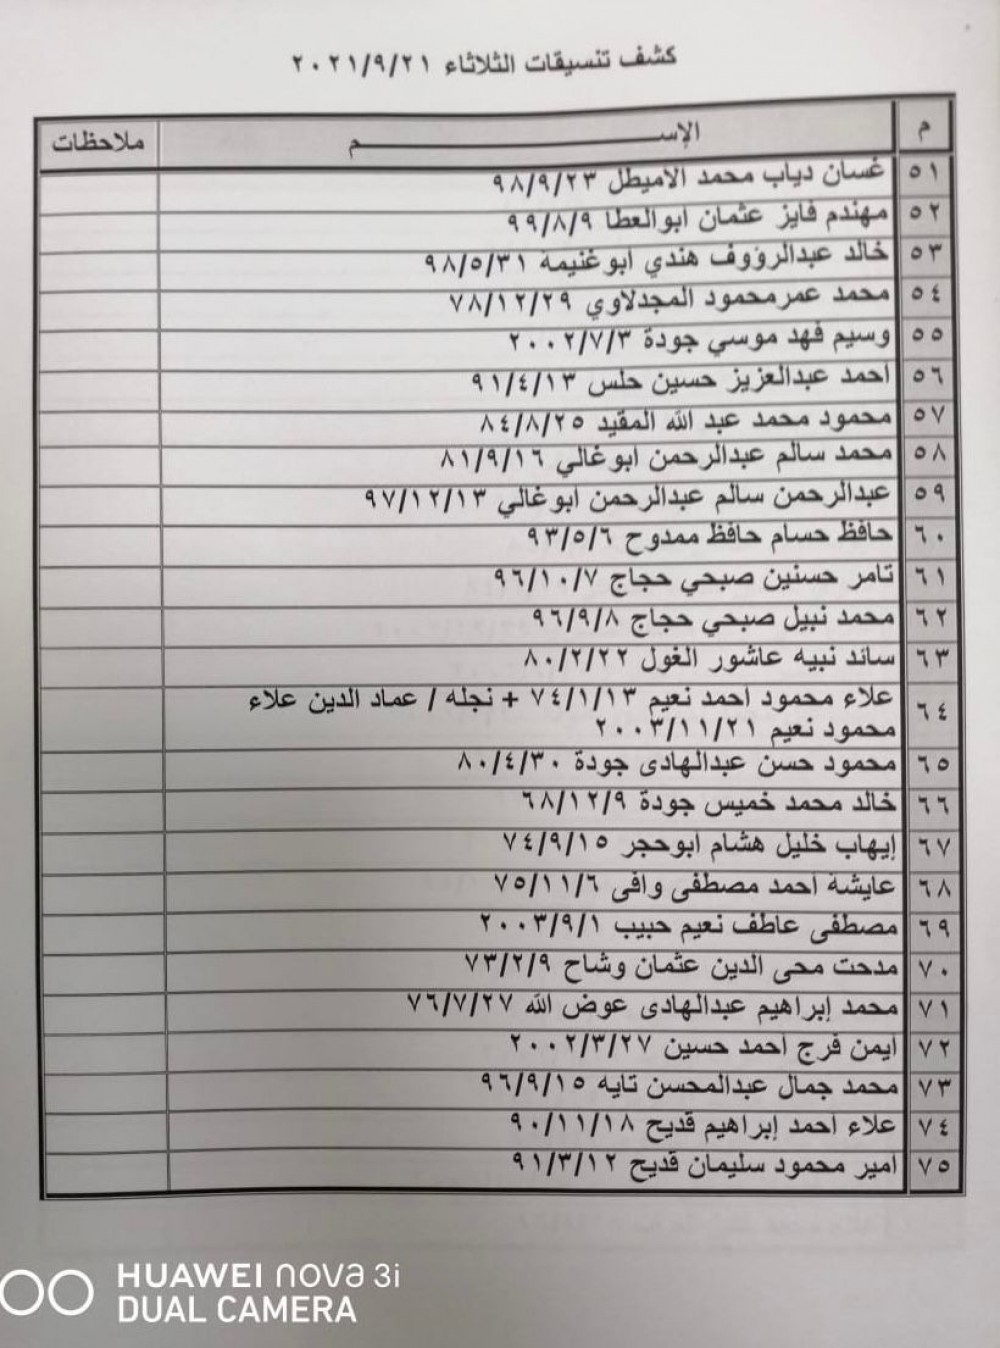 كشف تنسيقات الثلاثاء ٢٠٢١/٩/٢١
م الإســـــم ملاحظات
٥١ غسان دياب محمد الاميطل ٩٨/٩/٢٣
٥٢ مهندم فايز عثمان ابوالعطا ٩٩/٨/٩
٥٣ خالد عبدالرؤوف هندي ابوغنيمة ٩٨/٥/٣١
٥٤ محمد عمرمحمود المجدلاوي ٧٨/١٢/٢٩
٥٥ وسيم فهد موسي جودة ٢٠٠٢/٧/٣
٥٦ احمد عبدالعزيز حسين حلس ٩١/٤/١٣
٥٧ محمود محمد عبد الله المقيد ٨٤/٨/٢٥
٥٨ محمد سالم عبدالرحمن ابوغالي ٨١/٩/١٦
٥٩ عبدالرحمن سالم عبدالرحمن ابوغالي ٩٧/١٢/١٣
٦٠ حافظ حسام حافظ ممدوح ٩٣/٥/٦
٦١ تامر حسنين صبحي حجاج ٩٦/١٠/٧
٦٢ محمد نبيل صبحي حجاج ٩٦/٩/٨
٦٣ سائد نبيه عاشور الغول ٨٠/٢/٢٢
٦٤ علاء محمود احمد نعيم ٧٤/١/١٣ + نجله / عماد الدين علاء
محمود نعيم ٢٠٠٣/١١/٢١
٦٥ محمود حسن عبدالهادى جودة ٨٠/٤/٣٠
٦٦ خالد محمد خميس جودة ٦٨/١٢/٩
٦٧ إيهاب خليل هشام ابوحجر ٧٤/٩/١٥
٦٨ عايشة احمد مصطفى وافى ٧٥/١١/٦
٦٩ مصطفى عاطف نعيم حبيب ٢٠٠٣/٩/١
٧٠ مدحت محى الدين عثمان وشاح ٧٣/٢/٩
٧١ محمد إبراهيم عبدالهادى عوض الله ٧٦/٧/٢٧
٧٢ ايمن فرج احمد حسين ٢٠٠٢/٣/٢٧
٧٣ محمد جمال عبدالمحسن تايه ٩٦/٩/١٥
٧٤ علاء احمد إبراهيم قديح ٩٠/١١/١٨
٧٥ امير محمود سليمان قديح ٩١/٣/١٢
HUAWEI nova 3i
DUAL CAMERA